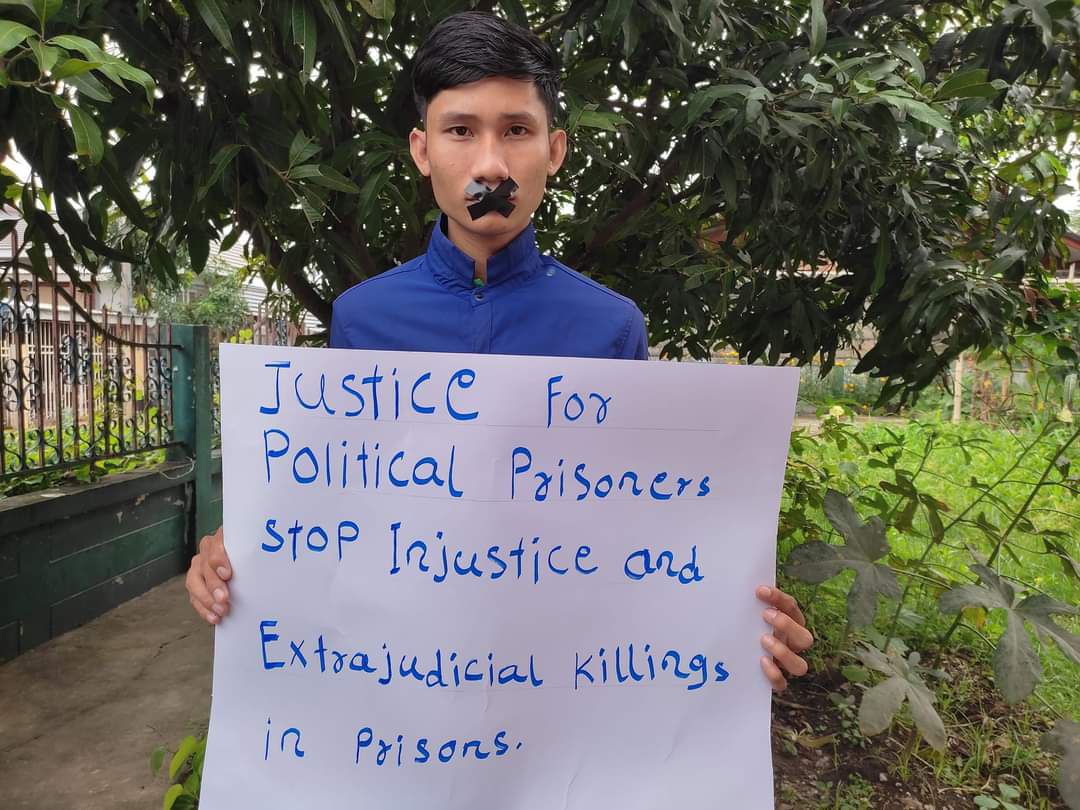 Justice For
Political Prisoners
Stop Injustice and
Extrajudicial Killings
in Prisons.